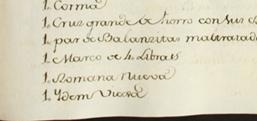 1. Corma
1. Cruz grande de horro con sus
1. par de Balanzitas maltratada
1. Marco de h. Libras
1. Romana Nueva
1. Ydem Vieja